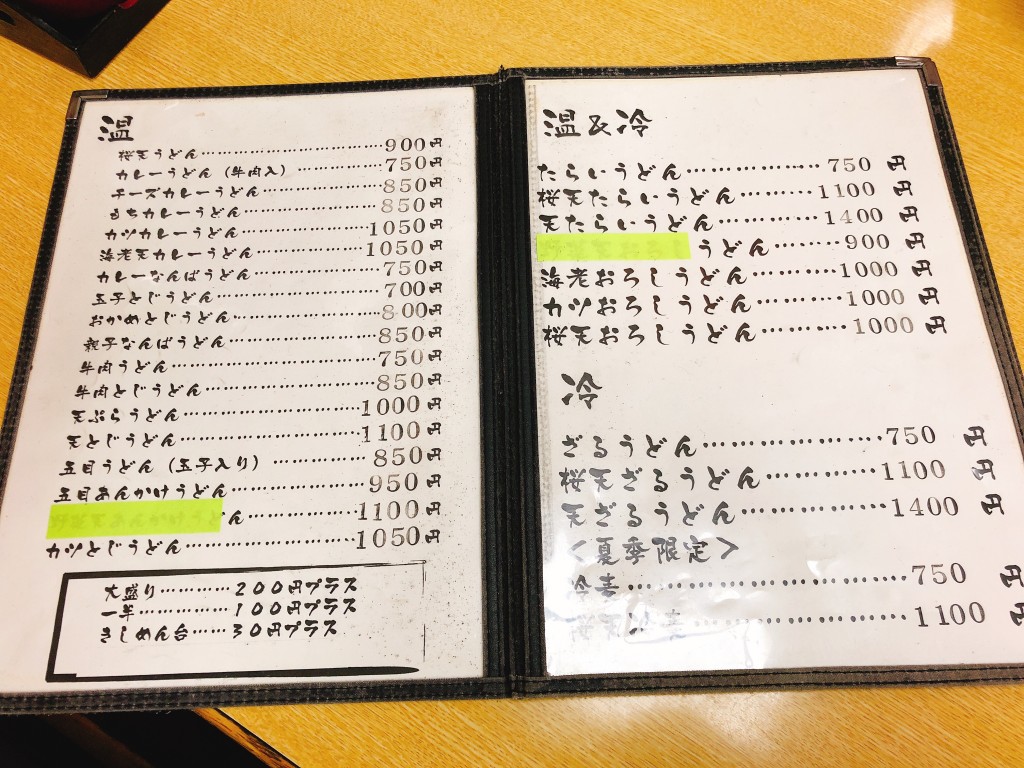 温
桜天うどん………………………900円
カレーうどん（牛肉入）…………750円
チーズカレーうどん………………850円
もちカレーうどん…………………850円
カツカレーうどん…………………1050円
海老天カレーうどん………………1050円
カレーなんばうどん………………750円
玉子とじうどん……………………700円
おかめとじうどん…………………800円
親子なんばうどん…………………850円
牛肉うどん…………………………750円
牛肉とじうどん……………………850円
天ぷらうどん………………………1000円
天とじうどん………………………1100円
五目うどん（玉子入り）…………850円
五目あんかけうどん………………950円
あんかけうどん……………………1100円
カツとじうどん……………………1050円
大盛り…………200円プラス
一半…………100円プラス
きしめん台……30円プラス
温&冷
たらいうどん………………750円
桜天たらいうどん…………1100円
天たらいうどん……………1400円
おろしうどん………900円
海老おろしうどん…………1000円
カツおろしうどん…………1000円
桜天おろしうどん…………1000円
冷
ざるうどん…………………750円
桜天ざるうどん……………1100円
天ざるうどん………………1400円
＜夏季限定＞
冷麦…………………………750円
桜天冷麦……………………1100円